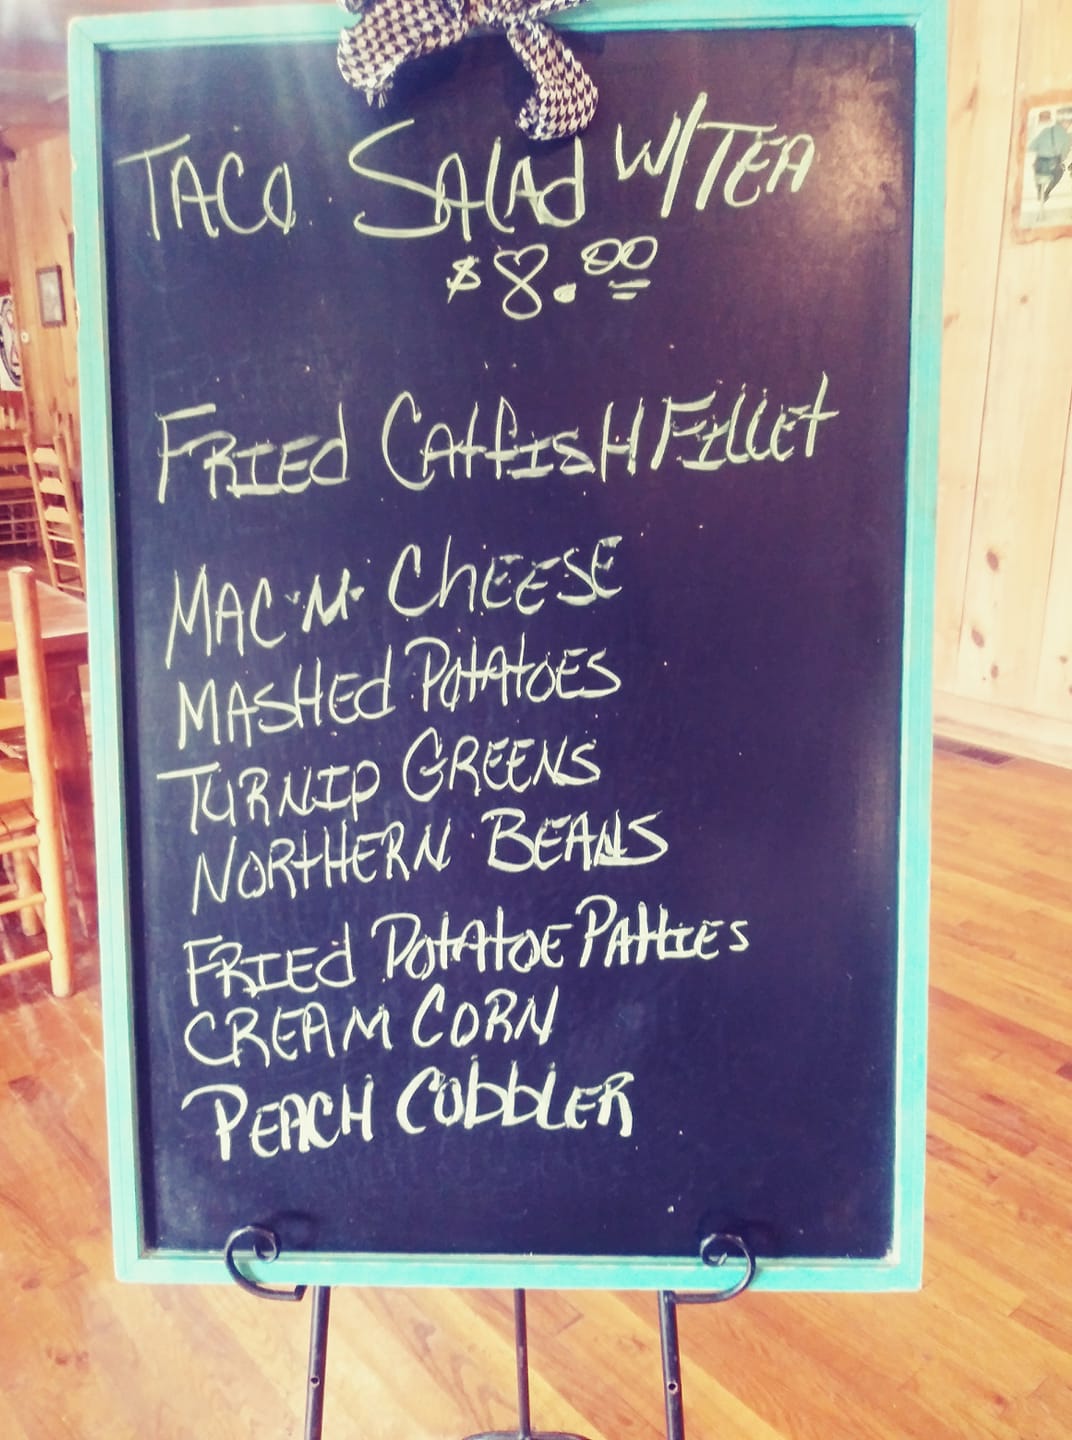 TACO SALAD W/TEA
$8.00
FRIED CATFISH FILLET
MAC 'N' CHEESE
MASHED POTATOES
TURNIP GREENS
NORTHERN BEANS
FRIED POTATOE PATTIES
CREAM CORN
PEACH COBBLER